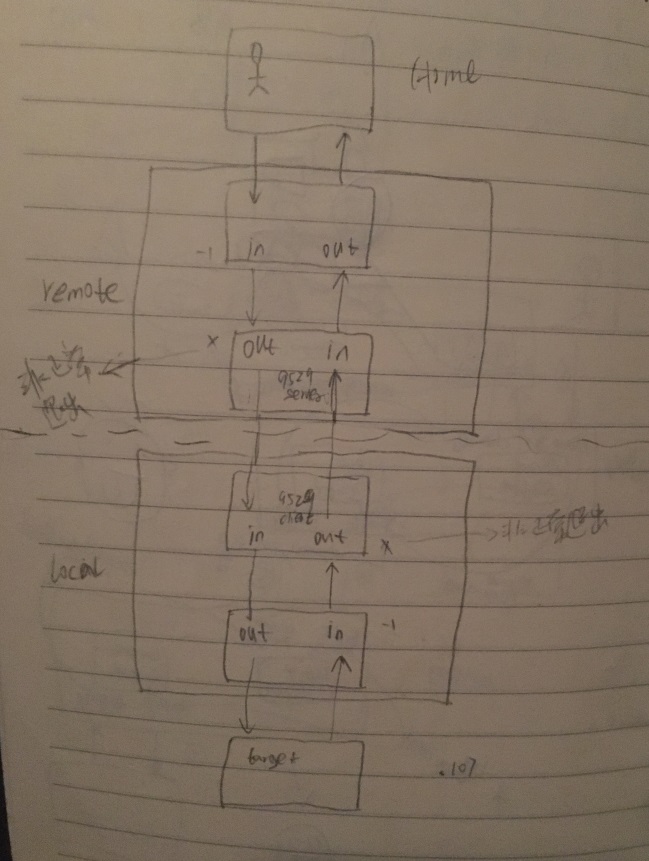 -1
in out
remote
x
out in
9529
server
非正常
退出
9529
client
in out
x
非正常退出
local
out in
-1
target
.107